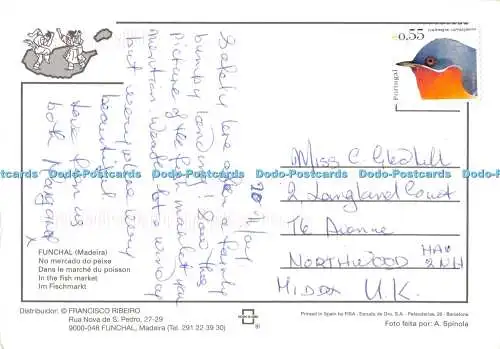 Safely here after a terribly
bumpy landing! Saw this
picture of the fish market you
mention Weather lots wind
but every place very
beautiful
Love from us
both Margaret
x
€0,55
Portugal
Miss C. Gledhill
2 Langland Court
76 Avenue
NORTHWOOD HA6
2NH
MIDDX U.K.
FUNCHAL (Madeira)
No mercado do peixe
Dans le marché du poisson
In the fish market
Im Fischmarkt
Distribuidor: © FRANCISCO RIBEIRO
Rua Nova de S. Pedro, 27-29
9000-048 FUNCHAL, Madeira (Tel. 291 22 39 30)
Printed in Spain by FISA - Escudo de Oro, S.A. - Palaudarias, 26 - Barcelona
Foto feita por: A. Spinola
Dodo-Postcards Dodo-Postcards Dodo-Postcards Dodo-Postcards